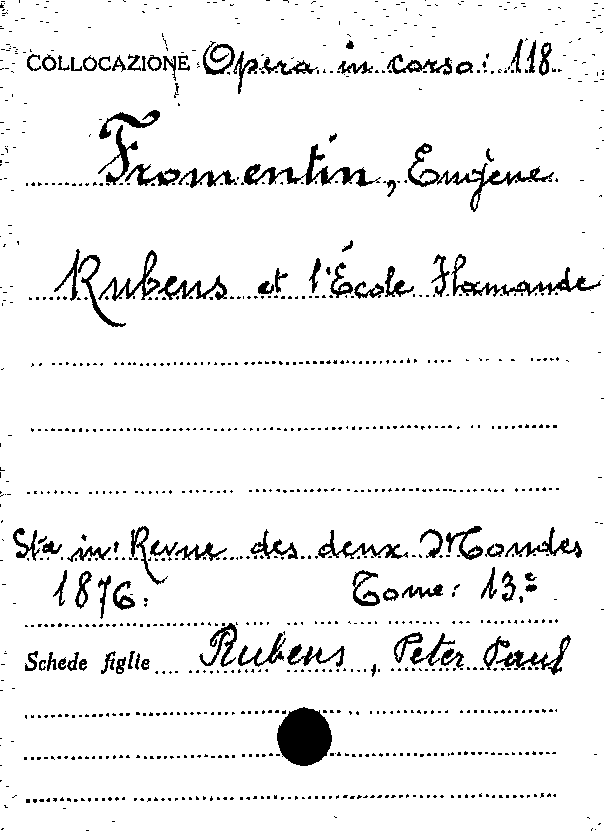 COLLOCAZIONE Opera in corso: 118
Fromentin, Eugène
Rubens et l'École Flamande
Sta in: Revue des deux Mondes
1876. Tome: 13.º
Schede figlie Rubens, Peter Paul